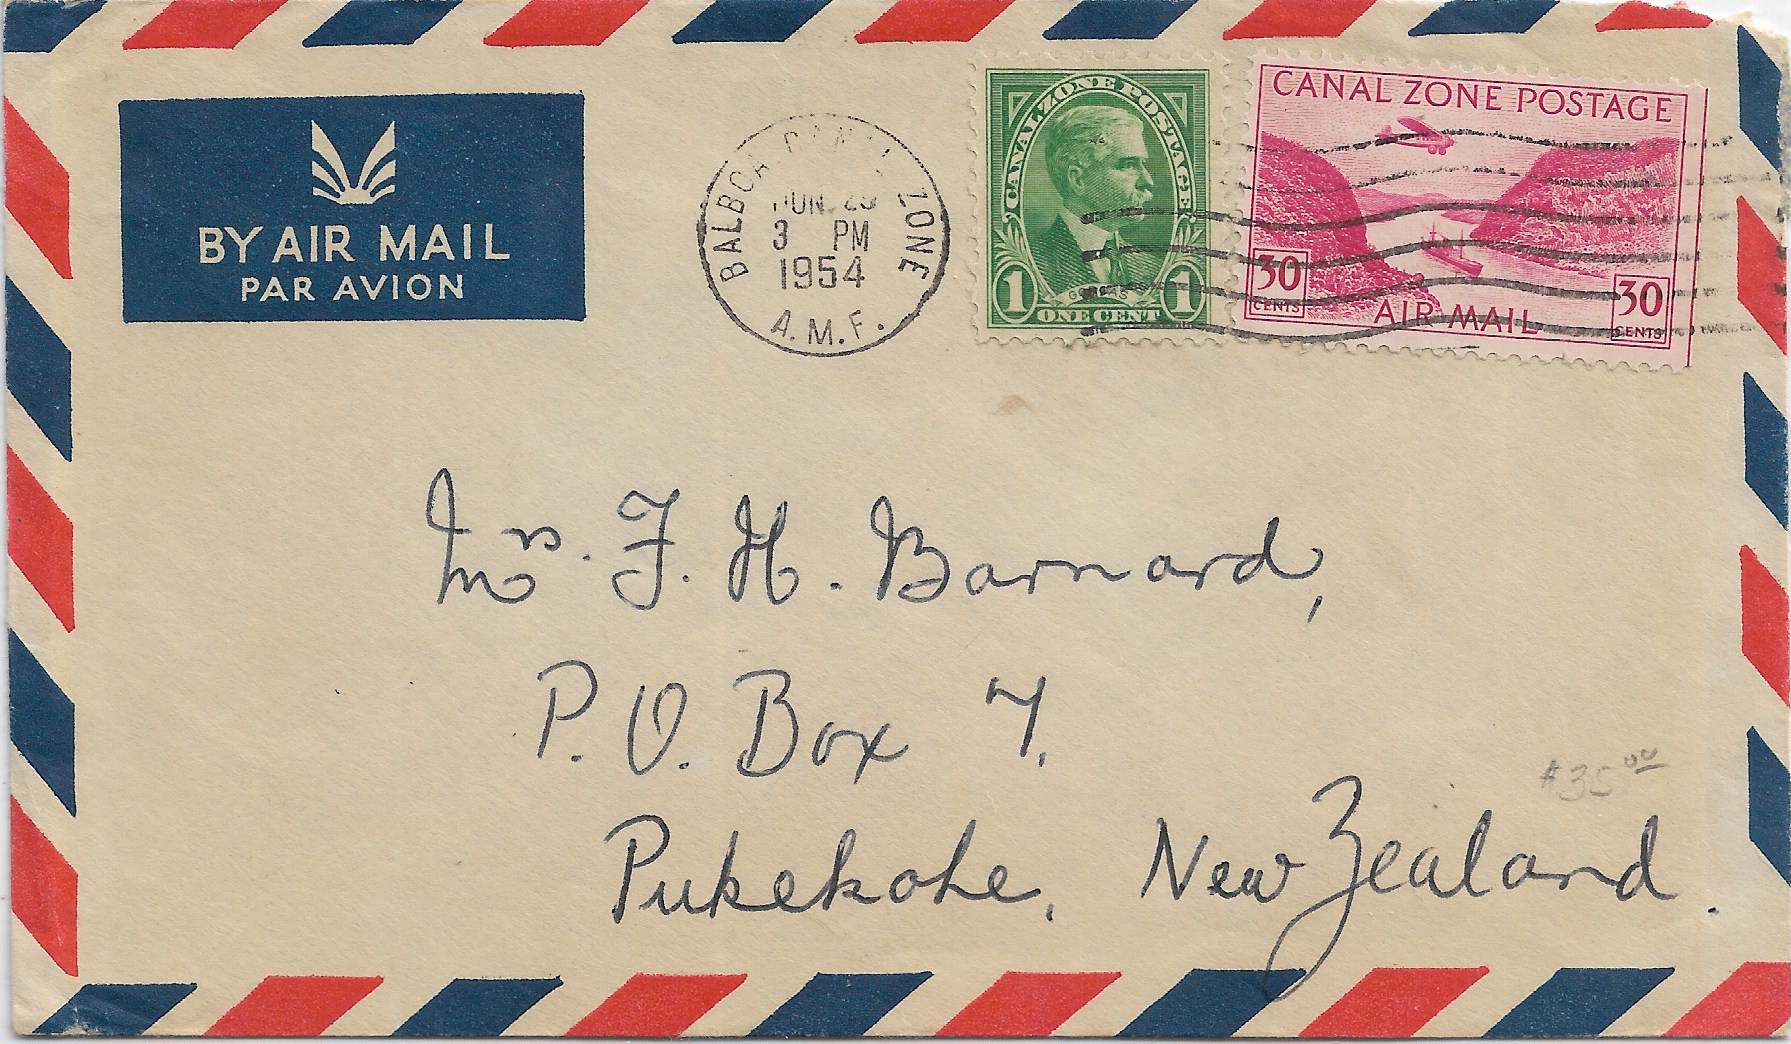 BY AIR MAIL
PAR AVION
BALBOA CANAL ZONE
JUN. 23
3 PM
1954
A.M.F.
CANAL ZONE POSTAGE
GOETHALS
1 ONE CENT 1
CANAL ZONE POSTAGE
30 CENTS
AIR MAIL
30 CENTS
Mrs. F. H. Barnard,
P. O. Box 7,
Pukekohe, New Zealand.
$35.00